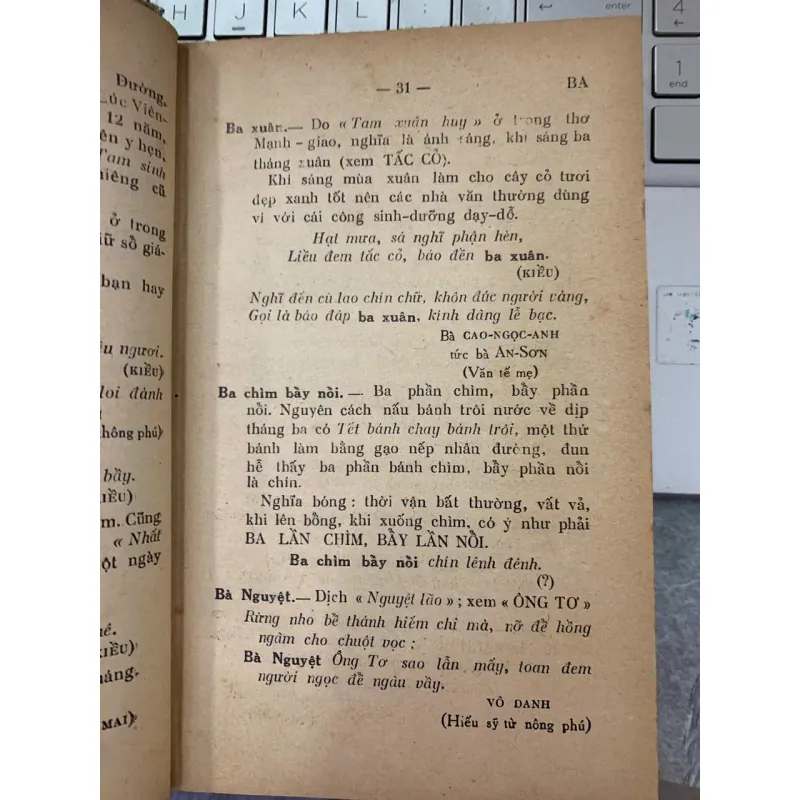 Đường,
Lúc Viên-
12 năm,
n y hẹn,
Tam sinh
niêng cũ
ở trong
iữ số giá-
bạn hay
u ngươi.
(KIỀU)
loi đành
hông phú)
bầy.
IỀU)
m. Cũng
« Nhất
ột ngày
uê.
KIỀU)
háng,
MAI)
— 31 —
BA
Ba xuân.— Do « Tam xuân huy » ở trong thơ
Mạnh - giao, nghĩa là ánh sáng, khí sáng ba
tháng xuân (xem TẤC CỎ).
Khí sáng mùa xuân làm cho cây cỏ tươi
đẹp xanh tốt nên các nhà văn thường dùng
ví với cái công sinh-dưỡng dạy-dỗ.
Hạt mưa, sá nghĩ phận hèn,
Liều đem tấc cỏ, báo đền ba xuân.
(KIỀU)
Nghĩ đến cù lao chín chữ, khôn đúc người vàng,
Gọi là báo đáp ba xuân, kính dâng lễ bạc.
Bà CAO-NGỌC-ANH
tức bà AN-SƠN
(Văn tế mẹ)
Ba chìm bầy nồi. — Ba phần chìm, bầy phần
nồi. Nguyên cách nấu bánh trôi nước về dịp
tháng ba có Tết bánh chay bánh trôi, một thứ
bánh làm bằng gạo nếp nhân đường, đun
hễ thấy ba phần bánh chìm, bầy phần nồi
là chín.
Nghĩa bóng : thời vận bất thường, vất vả,
khi lên bồng, khi xuống chìm, có ý như phải
BA LẦN CHÌM, BẦY LẦN NỒI.
Ba chìm bầy nồi chín lênh đênh.
(?)
Bà Nguyệt.— Dịch « Nguyệt lão » ; xem « ÔNG TƠ »
Rừng nho bề thánh hiếm chi mà, nỡ đề hồng
ngâm cho chuột vọc :
Bà Nguyệt Ông Tơ sao lẫn mấy, toan đem
người ngọc đề ngàu vầy.
VÔ DANH
(Hiếu sỹ tử nông phú)
enter
4
1
end
H
J
K
L